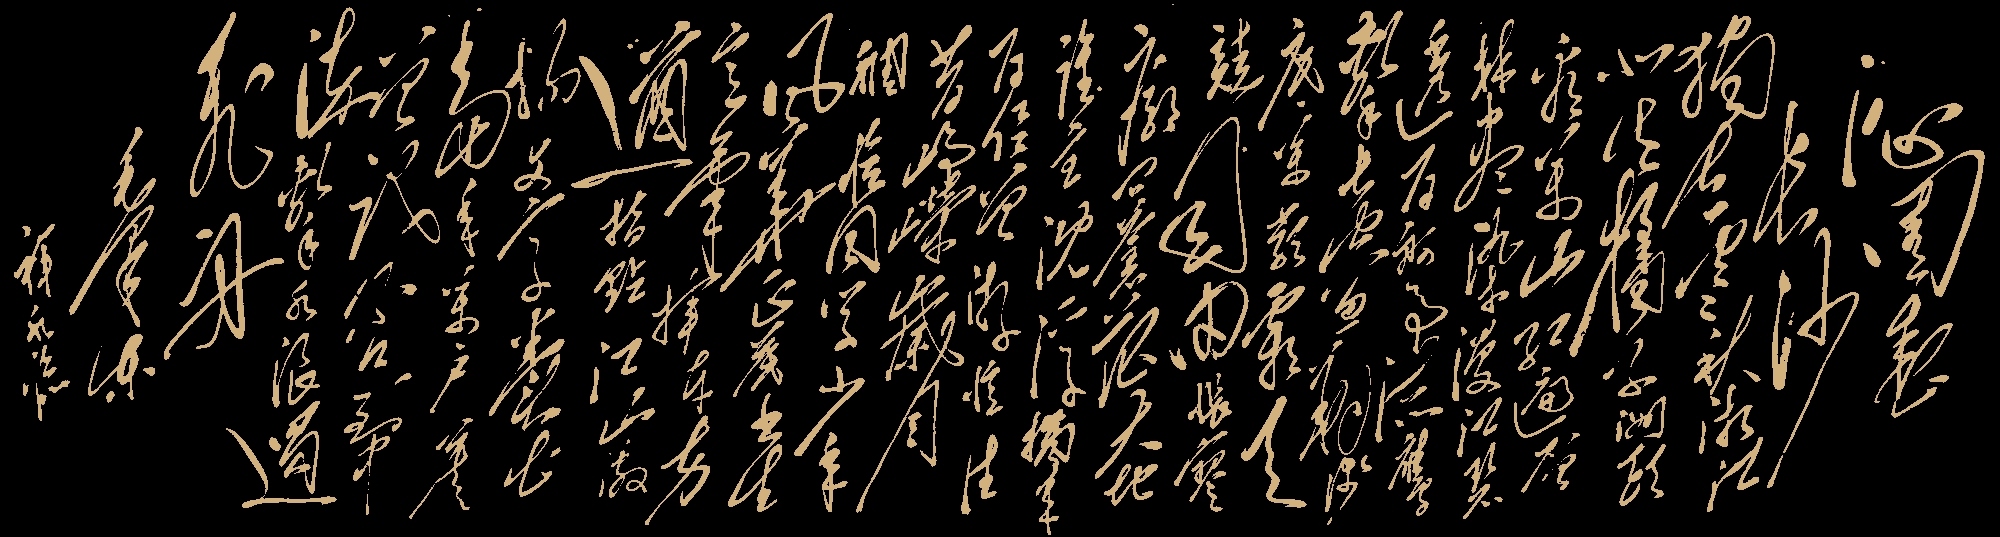 沁园春
长沙
独立寒秋湘江
北去橘子洲头
看万山红遍层
林尽染漫江碧
透百舸争流鹰
击长空鱼翔浅
底万类霜天
竞自由怅寥
廓问苍茫大地
谁主沉浮携来
百侣曾游忆往
昔峥嵘岁月
稠恰同学少年
风华正茂书生
意气挥斥方
遒指点江山激
扬文字粪土
当年万户侯
曾记否到中
流击水浪遏
飞舟
毛泽东